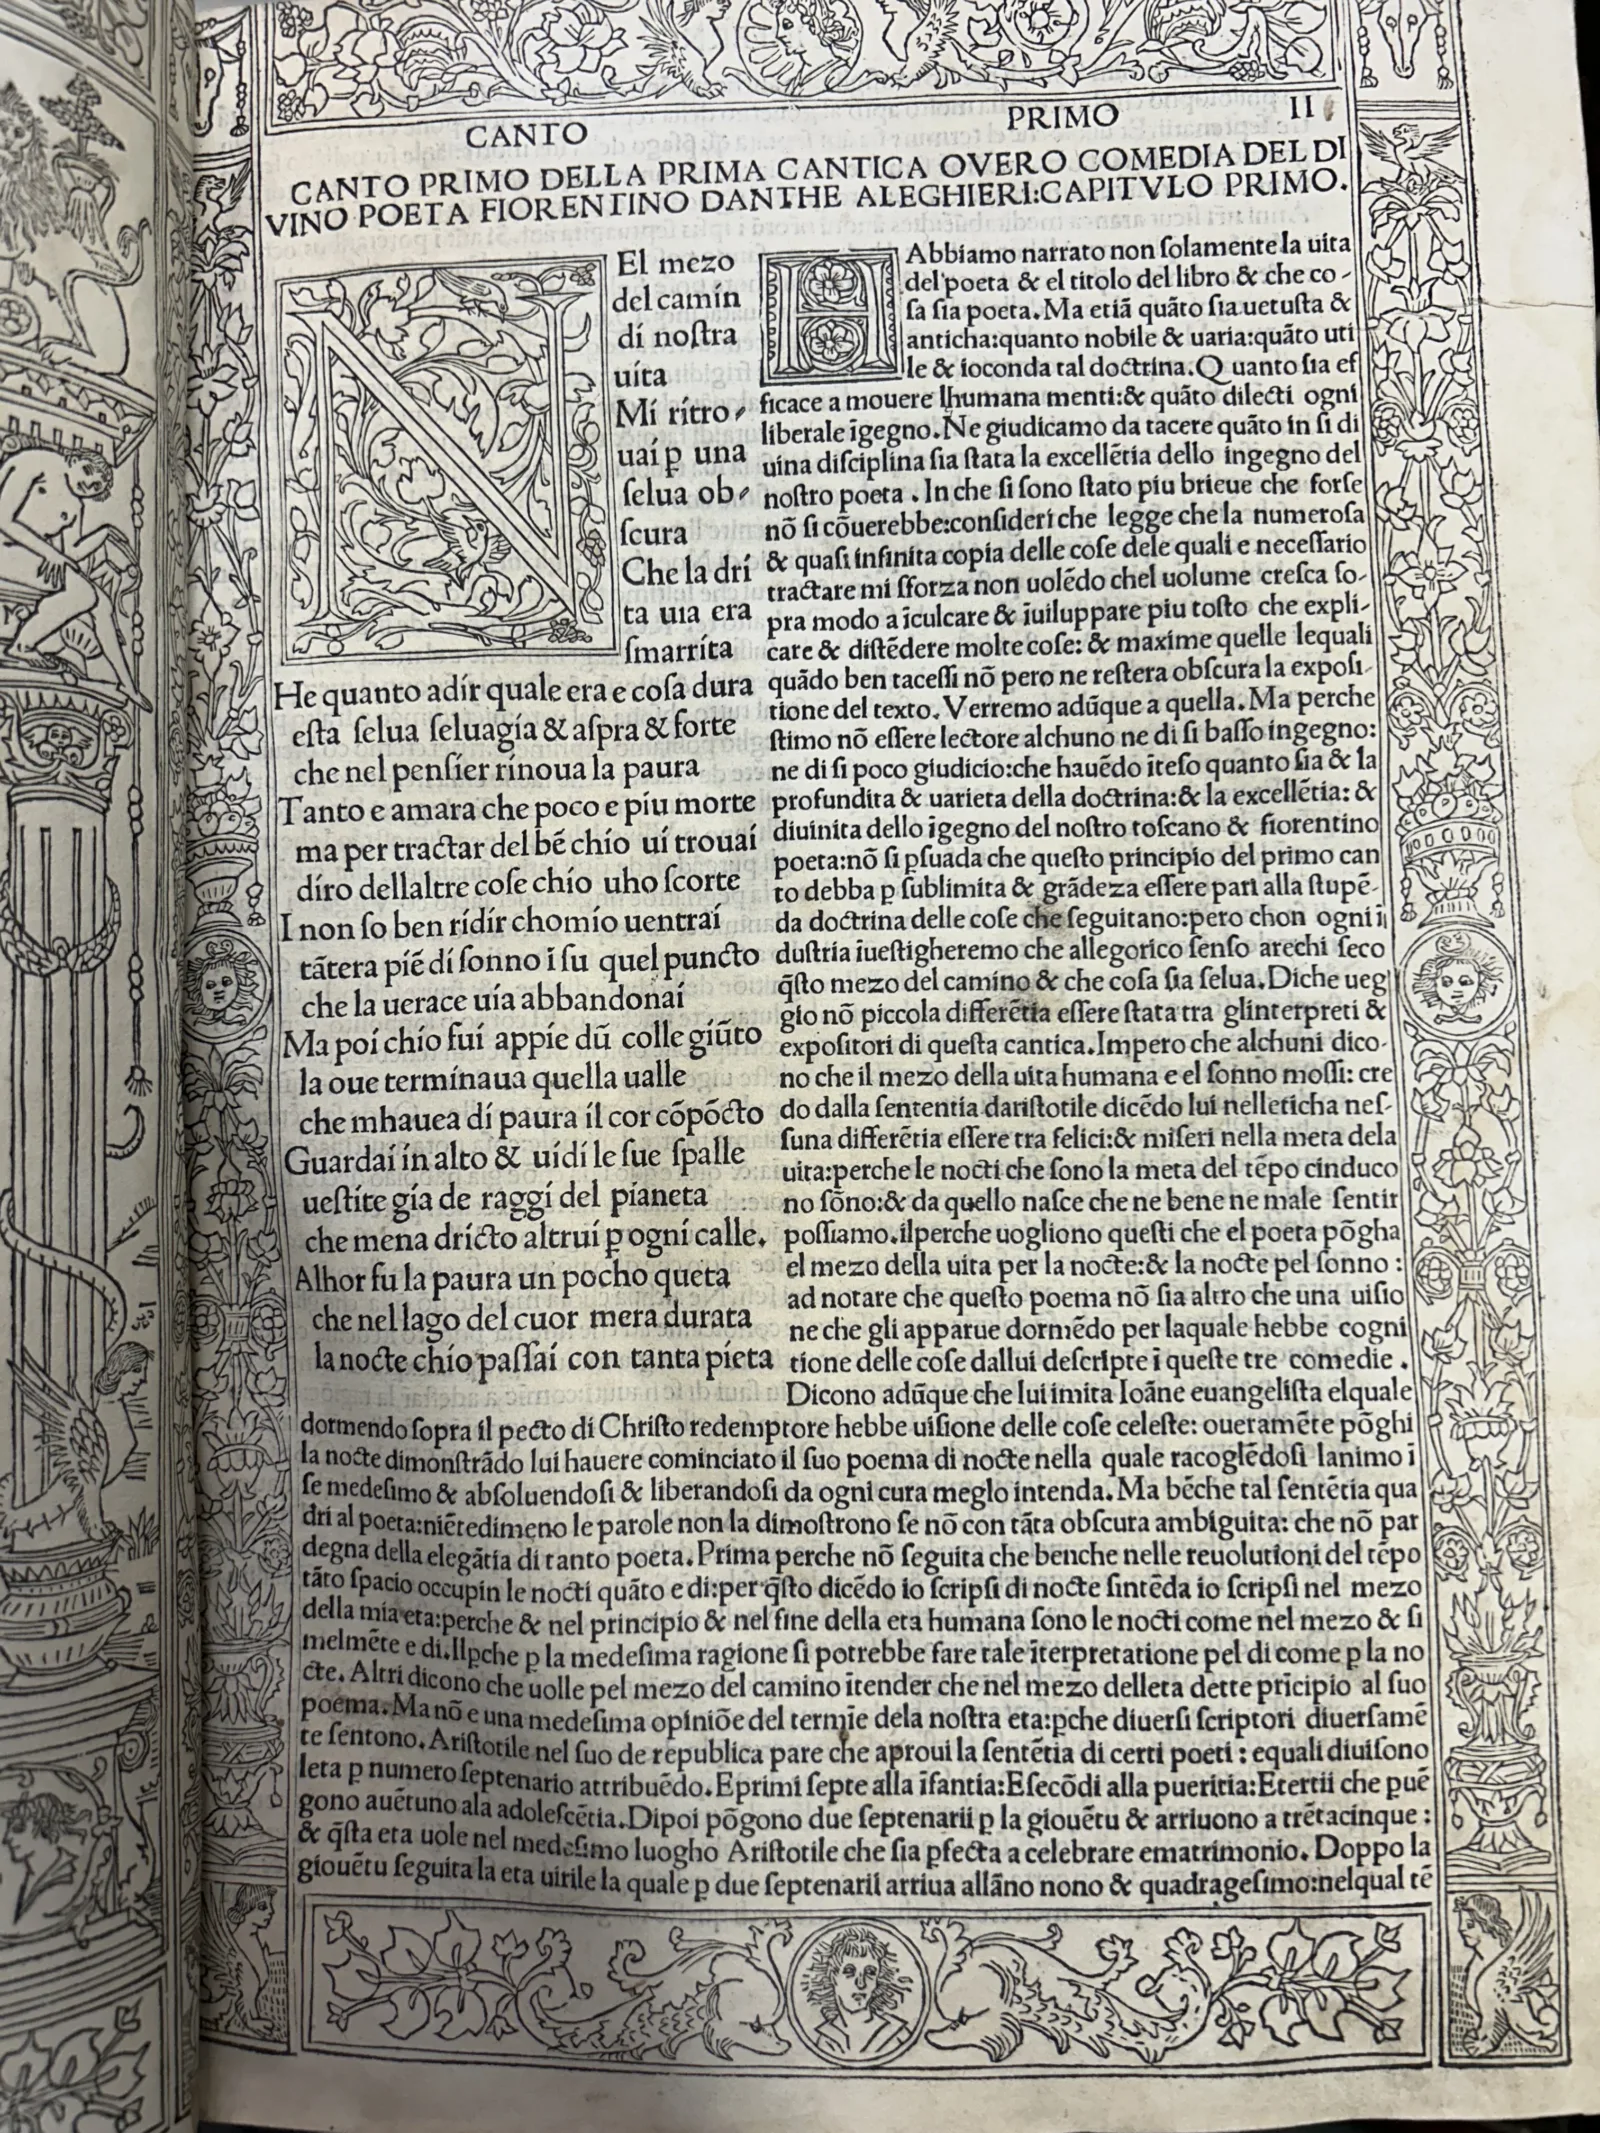 CANTO PRIMO II
CANTO PRIMO DELLA PRIMA CANTICA OVERO COMEDIA DEL DI
VINO POETA FIORENTINO DANTHE ALEGHIERI:CAPITVLO PRIMO.
N
El mezo
del camín
dí noſtra
uíta
Mí rítro
uaí ꝑ una
ſelua ob
ſcura
Che la drí
ta uía era
ſmarríta
He quanto adír quale era e coſa dura
eſta ſelua ſeluagía & aſpra & forte
che nel penſíer rínoua la paura
Tanto e amara che poco e píu morte
ma per tractar del bẽ chío uí trouaí
díro dellaltre coſe chío uho ſcorte
I non ſo ben rídír chomío uentraí
tãtera píẽ dí ſonno ĩ ſu quel puncto
che la uerace uía abbandonaí
Ma poí chío fuí appíe dũ colle gíũto
la oue termínaua quella ualle
che mhauea dí paura íl cor cõpõcto
Guardaí ín alto & uídí le ſue ſpalle
ueſtíte gía de raggí del píaneta
che mena drícto altruí ꝑ ogní calle.
Alhor fu la paura un pocho queta
che nel lago del cuor mera durata
la nocte chío paſſaí con tanta píeta
HAbbiamo narrato non ſolamente la uita
del poeta & el titolo del libro & che co-
ſa ſia poeta. Ma etiã quãto ſia uetuſta &
anticha:quanto nobile & uaria:quãto uti
le & ioconda tal doctrina. Quanto ſia ef
ficace a mouere lhumana menti:& quãto dilecti ogni
liberale ĩgegno. Ne giudicamo da tacere quãto in ſi di
uina diſciplina ſia ſtata la excellẽtia dello ingegno del
noſtro poeta . In che ſi ſono ſtato piu brieue che forſe
nõ ſi cõuerebbe:conſideri che legge che la numeroſa
& quaſi infinita copia delle coſe dele quali e neceſſario
tractare mi ſforza non uolẽdo chel uolume creſca ſo-
pra modo a ĩculcare & ĩuiluppare piu toſto che expli-
care & diſtẽdere molte coſe: & maxime quelle lequali
quãdo ben taceſſi nõ pero ne reſtera obſcura la expoſi-
tione del texto. Verremo adũque a quella. Ma perche
ſtimo nõ eſſere lectore alchuno ne di ſi baſſo ingegno:
ne di ſi poco giudicio:che hauẽdo ĩteſo quanto ſia & la
profundita & uarieta della doctrina:& la excellẽtia: &
diuinita dello ĩgegno del noſtro toſcano & fiorentino
poeta:nõ ſi ꝑſuada che queſto principio del primo can
to debba ꝑ ſublimita & grãdeza eſſere pari alla ſtupẽ-
da doctrina delle coſe che ſeguitano:pero chon ogni ĩ
duſtria ĩueſtigheremo che allegorico ſenſo arechi ſeco
q̃ſto mezo del camino & che coſa ſia ſelua. Diche ueg
gio nõ piccola differẽtia eſſere ſtata tra glinterpreti &
expoſitori di queſta cantica. Impero che alchuni dico-
no che il mezo della uita humana e el ſonno moſſi: cre
do dalla ſententia dariſtotile dicẽdo lui nelleticha neſ-
ſuna differẽtia eſſere tra felici:& miſeri nella meta dela
uita:perche le nocti che ſono la meta del tẽpo cinduco
no ſõno:& da quello naſce che ne bene ne male ſentir
poſſiamo. ilperche uogliono queſti che el poeta põgha
el mezo della uita per la nocte:& la nocte pel ſonno :
ad notare che queſto poema nõ ſia altro che una uiſio
ne che gli apparue dormẽdo per laquale hebbe cogni
tione delle coſe dallui deſcripte ĩ queſte tre comedie .
Dicono adũque che lui imita Ioãne euangeliſta elquale
dormendo ſopra il pecto di Chriſto redemptore hebbe uiſione delle coſe celeſte: oueramẽte põghi
la nocte dimonſtrãdo lui hauere cominciato il ſuo poema di nocte nella quale racoglẽdoſi lanimo ĩ
ſe medeſimo & abſoluendoſi & liberandoſi da ogni cura meglo intenda. Ma bẽche tal ſentẽtia qua
dri al poeta:niẽtedimeno le parole non la dimoſtrono ſe nõ con tãta obſcura ambiguita: che nõ par
degna della elegãtia di tanto poeta. Prima perche nõ ſeguita che benche nelle reuolutioni del tẽpo
tãto ſpacio occupin le nocti quãto e di:per q̃ſto dicẽdo io ſcripſi di nocte ſintẽda io ſcripſi nel mezo
della mia eta:perche & nel principio & nel fine della eta humana ſono le nocti come nel mezo & ſi
melmẽte e di. Ilꝑche ꝑ la medeſima ragione ſi potrebbe fare tale ĩterpretatione pel di come ꝑ la no
cte. Altri dicono che uolle pel mezo del camino ĩtender che nel mezo delleta dette pricipio al ſuo
poema. Ma nõ e una medeſima opiniõe del termĩe dela noſtra eta:ꝑche diuerſi ſcriptori diuerſamẽ
te ſentono. Ariſtotile nel ſuo de republica pare che aproui la ſentẽtia di certi poeti : equali diuiſono
leta ꝑ numero ſeptenario attribuẽdo. E primi ſepte alla ĩfantia:E ſecõdi alla pueritia:E tertii che ꝑuẽ
gono auẽtuno ala adoleſcẽtia. Dipoi põgono due ſeptenarii ꝑ la giouẽtu & arriuono a trẽtacinque :
& q̃ſta eta uole nel medeſimo luogho Ariſtotile che ſia ꝑfecta a celebrare ematrimonio. Doppo la
giouẽtu ſeguita la eta uirile la quale ꝑ due ſeptenarii arriua allãno nono & quadrageſimo:nelqual tẽ